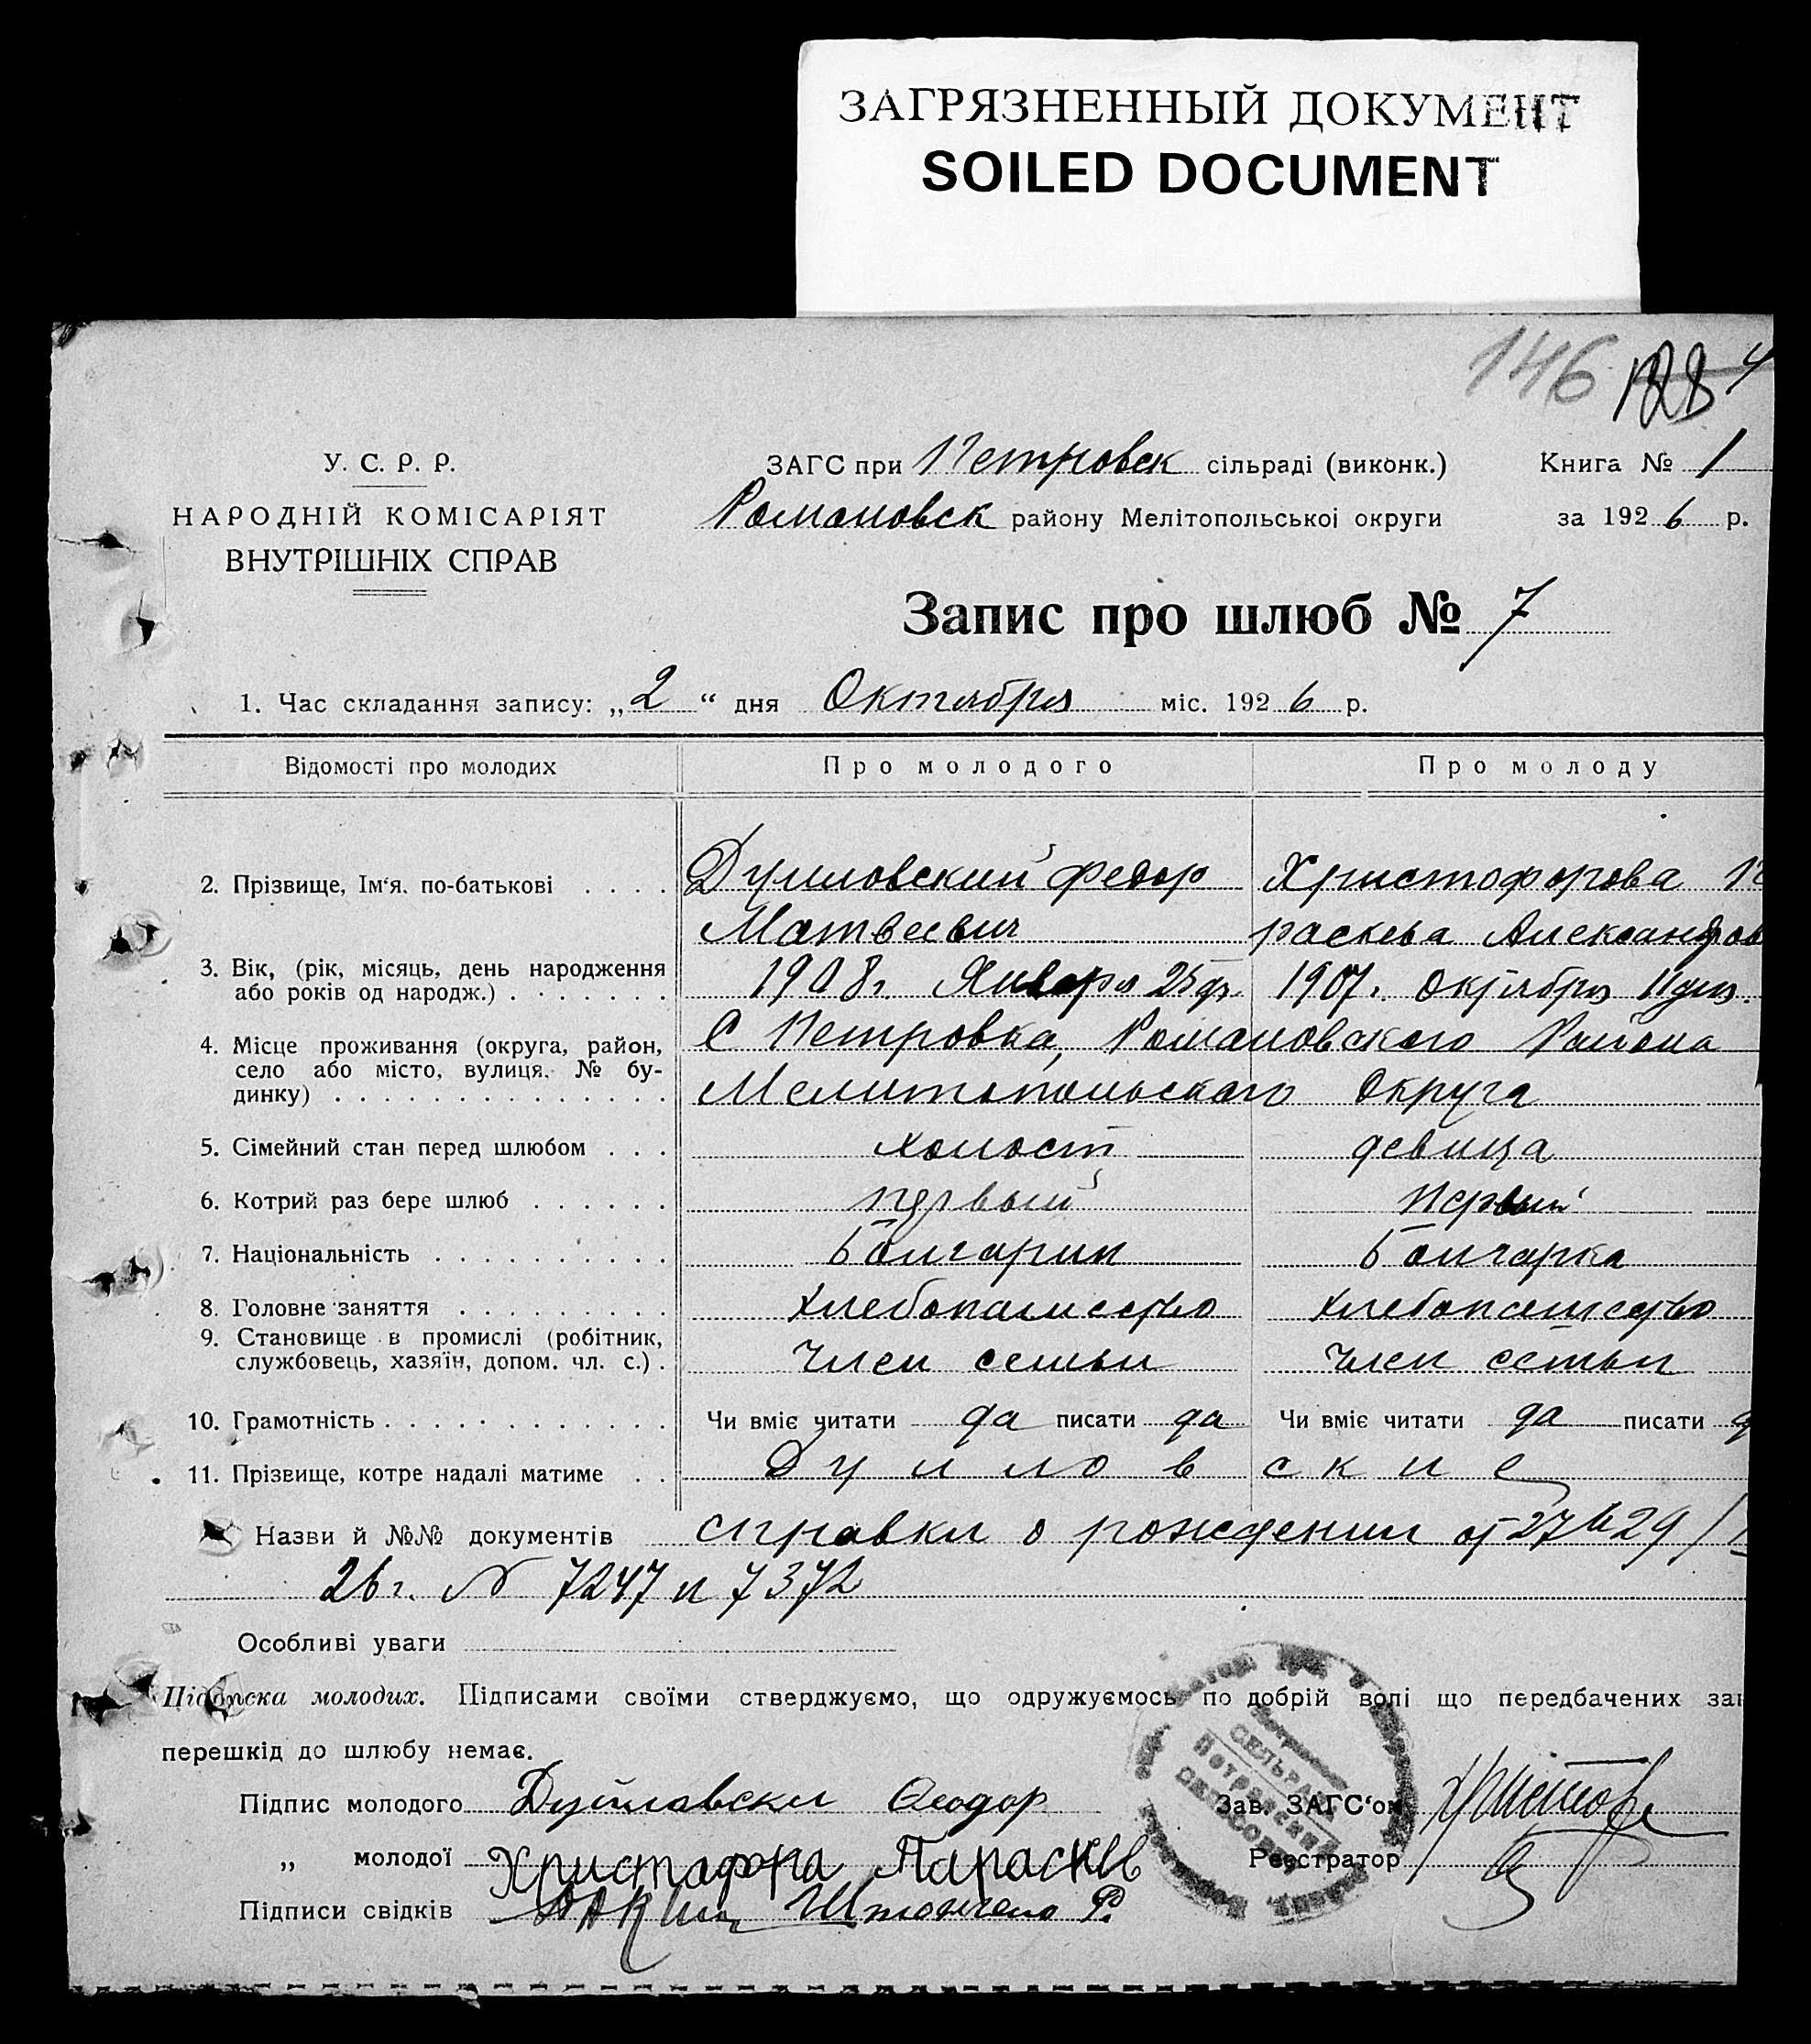 ЗАГРЯЗНЕННЫЙ ДОКУМЕНТ
SOILED DOCUMENT
146 128
У. С. Р. Р.
НАРОДНІЙ КОМІСАРІЯТ
ВНУТРІШНІХ СПРАВ
ЗАГС при Петровск сільраді (виконк.) Книга № 1
Романовск району Мелітопольської округи за 1926 р.
Запис про шлюб № 7
1. Час складання запису: „2“ дня Октября міс. 1926 р.
Відомості про молодих Про молодого Про молоду
2. Прізвище, Ім‘я, по-батькові . . . . Дуиловский Федор Христофорова Па
Матвеевич раскева Александров
3. Вік, (рік, місяць, день народження
або років од народж.) . . . . . . . 1908 г. Января 25 дн. 1907 г. Октября 11 дня.
4. Місце проживання (округа, район,
село або місто, вулиця, № бу-
динку) . . . . . . . . . . . . . .
С Петровка, Романовского Района
Мелитопольского Округа
5. Сімейний стан перед шлюбом . . . холост девица
6. Котрий раз бере шлюб . . . . . . первый Первый
7. Національність . . . . . . . . . . Болгарин Болгарка
8. Головне заняття . . . . . . . . . хлебопашество хлебопашество
9. Становище в промислі (робітник,
службовець, хазяїн, допом. чл. с.) . Член семьи Член семьи
10. Грамотність . . . . . . . . . . . . Чи вміє читати да писати да Чи вміє читати да писати д
11. Прізвище, котре надалі матиме . . Дуиловские
Назви й №№ документів справки о рождении от 27 и 29/
26 г. № 7247 и 7372
Особливі уваги
Підписка молодих. Підписами своїми стверджуємо, що одружуємось по добрій волі що передбачених зак
перешкід до шлюбу немає.
Підпис молодого Дуйлавски Феодор Зав. ЗАГС‘ом
„ молодої Христафора Параскев Реєстратор
Підписи свідків
СЕЛЬРАДА